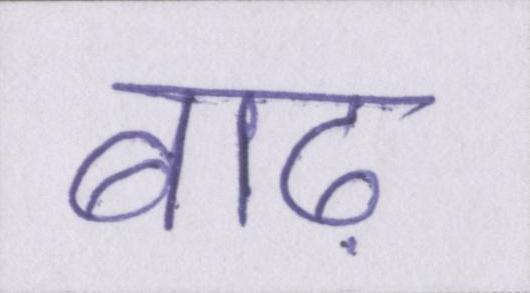 बाढ़